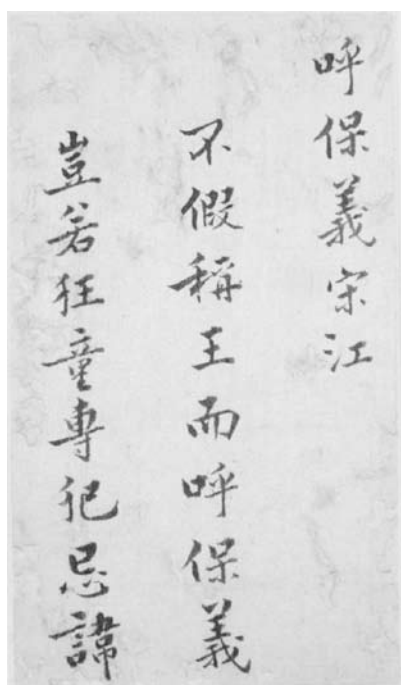 呼保義宋江
不假稱王而呼保義
豈若狂童專犯忌諱